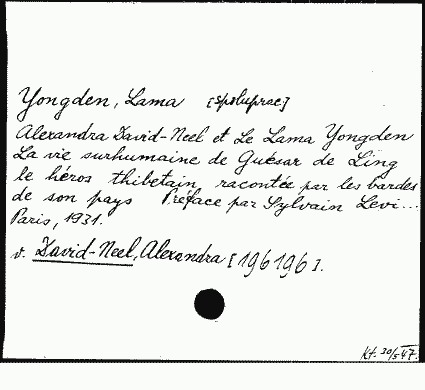 Yongden, Lama [spoluprac]
Alexandra David-Neel et Le Lama Yongden
La vie surhumaine de Guésar de Ling
le héros thibetain, racontée par les bardes
de son pays Préface par Sylvain Levi...
Paris, 1931.
v. David-Neel, Alexandra [196196].
Kt. 30/5 47.